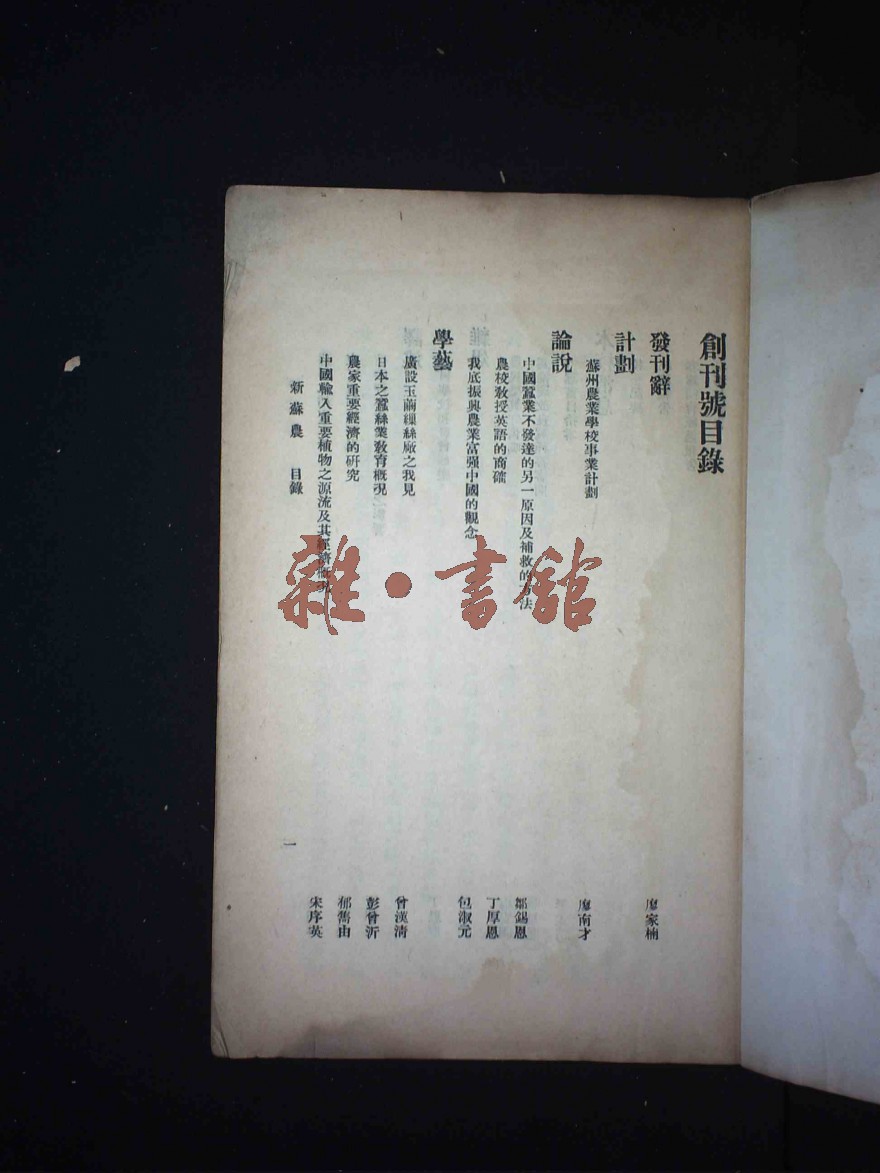 創刊號目錄
發刊辭 廖家楠
計劃
蘇州農業學校事業計劃 廖南才
論說
中國蠶業不發達的另一原因及補救的方法 鄒錫恩
農校教授英語的商礭 丁厚恩
我底振興農業富强中國的觀念 包淑元
學藝
廣設玉繭繅絲廠之我見 曾漢淸
日本之蠶絲業敎育概况 彭曾沂
農家重要經濟的硏究 郁雋由
中國輸入重要植物之源流及其經濟概况 宋序英
新蘇農 目錄
一
雜·書館